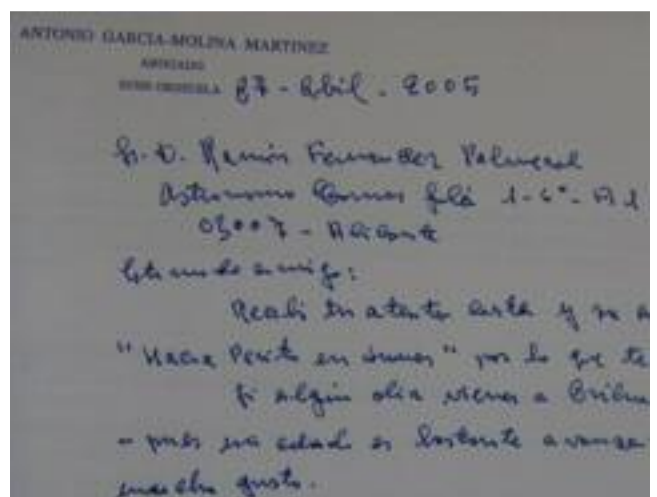 ANTONIO GARCIA-MOLINA MARTINEZ
ABOGADO
ORIHUELA 27 - Abril - 2005
Sr. D. Ramón Fernandez Palmeral
Astronomo Comas Solá 1-6º-A1
03007 - Alicante
Estimado amigo:
Recibí tu atenta carta y
"Hacia Perito en lunas" por lo que te
Si algún dia vienes a
- pues mi edad es bastante
mucho gusto.